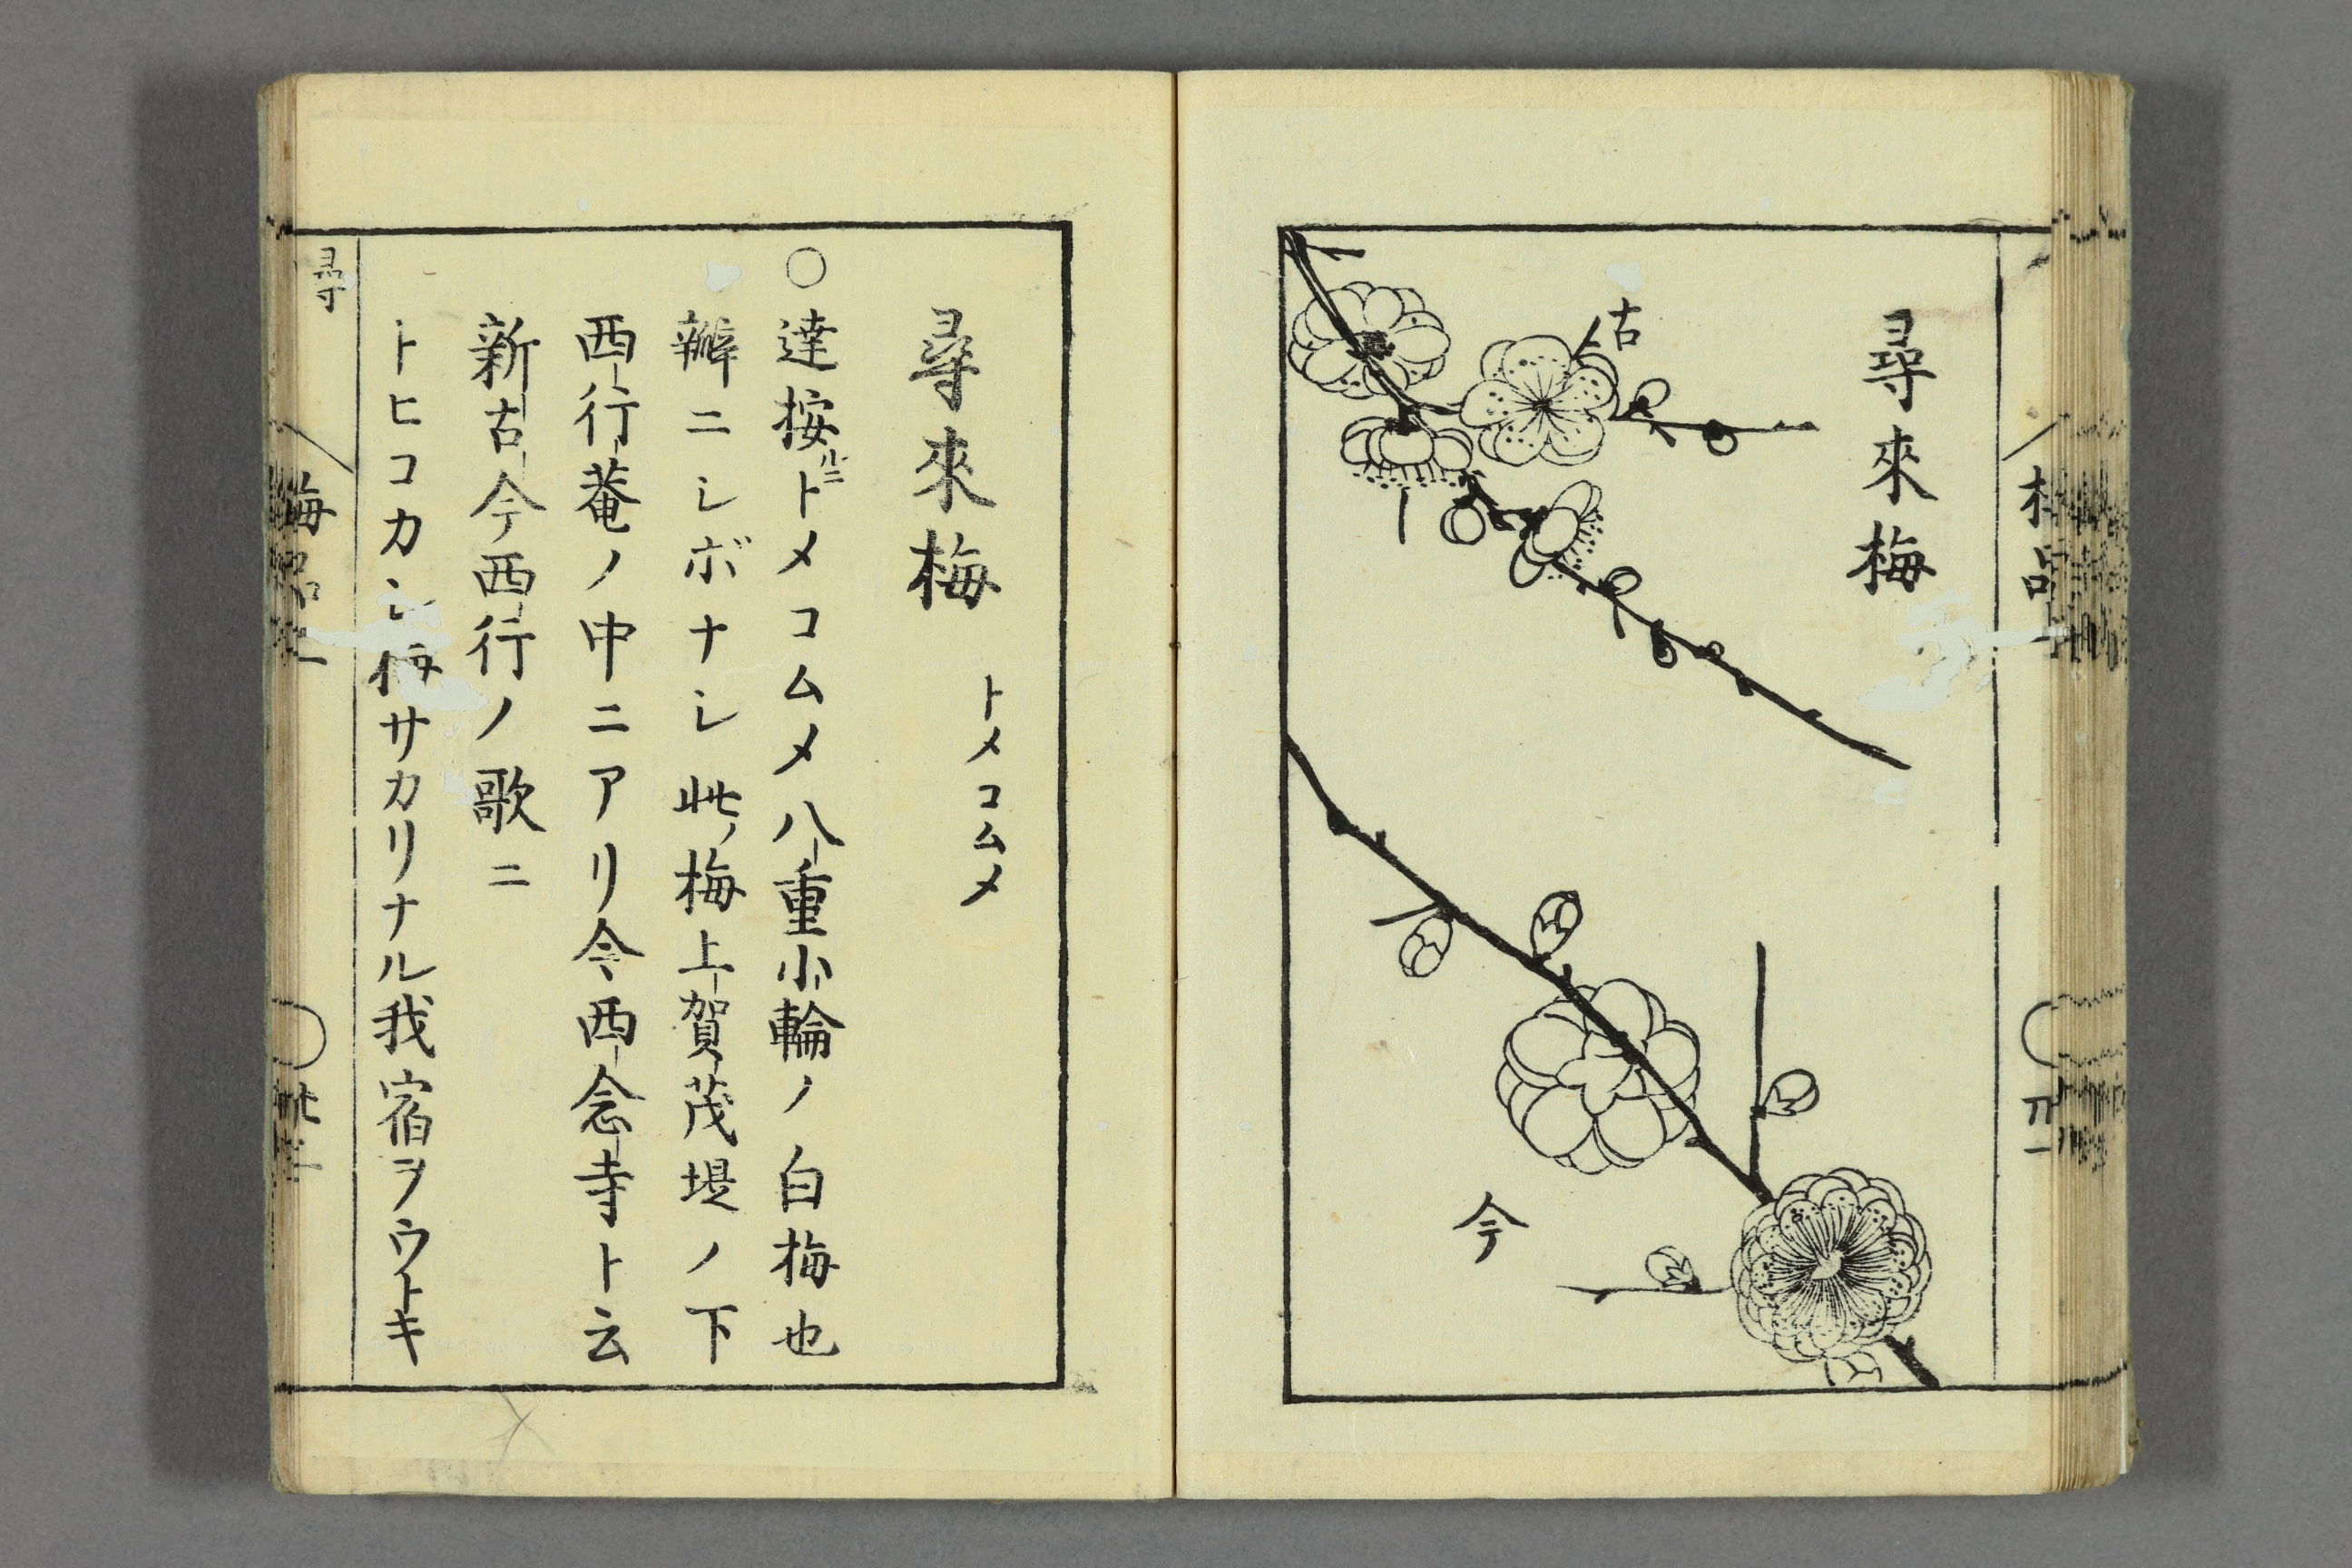 尋來梅
古
今
尋來梅
トメコムメ
○達按ルニトメコムメ八重小輪ノ白梅也
瓣ニシボナシ此ノ梅上賀茂堤ノ下
西行菴ノ中ニアリ今西念寺ト云
新古今西行ノ歌ニ
トヒコカシ梅サカリナル我宿ヲウトキ
尋
梅